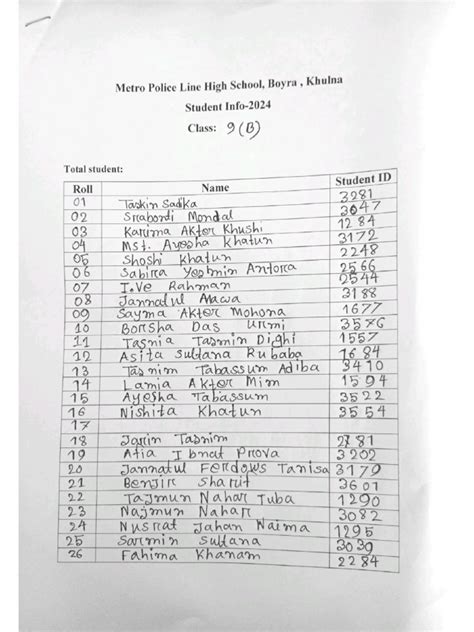 Metro Police Line High School, Boyra , Khulna
Student Info-2024
Class: 9(B)
Total student:
Roll Name Student ID
01 Taskin Sadka 3281
02 Srabordi Mondal 3047
03 Karima Akter Khushi 1284
04 Mst. Ayesha Khatun 3172
05 Shoshi Khatun 2248
06 Sabirra Yesmin Antora 2566
07 I.Ve Rahman 2544
08 Jannatul Mawa 3188
09 Sayma Akter Mohona 1677
10 Borsha Das Urmi 3576
11 Tasnia Tasmin Dighi 1557
12 Asita Sultana Rubaba 1684
13 Tasnim Tabassum Adiba 3410
14 Lamia Akter Mim 1594
15 Ayesha Tabassum 3522
16 Nishita Khatun 3554
17
18 Jarin Tasnim 2781
19 Afia Ibnat Prova 3202
20 Jannatul Ferdows Tanisa 3179
21 Benjir Sharif 3601
22 Tajmun Nahar Tuba 1290
23 Najmun Nahar 3082
24 Nusrat Jahan Naima 1295
25 Sarmin Sultana 3039
26 Fahima Khanam 2284